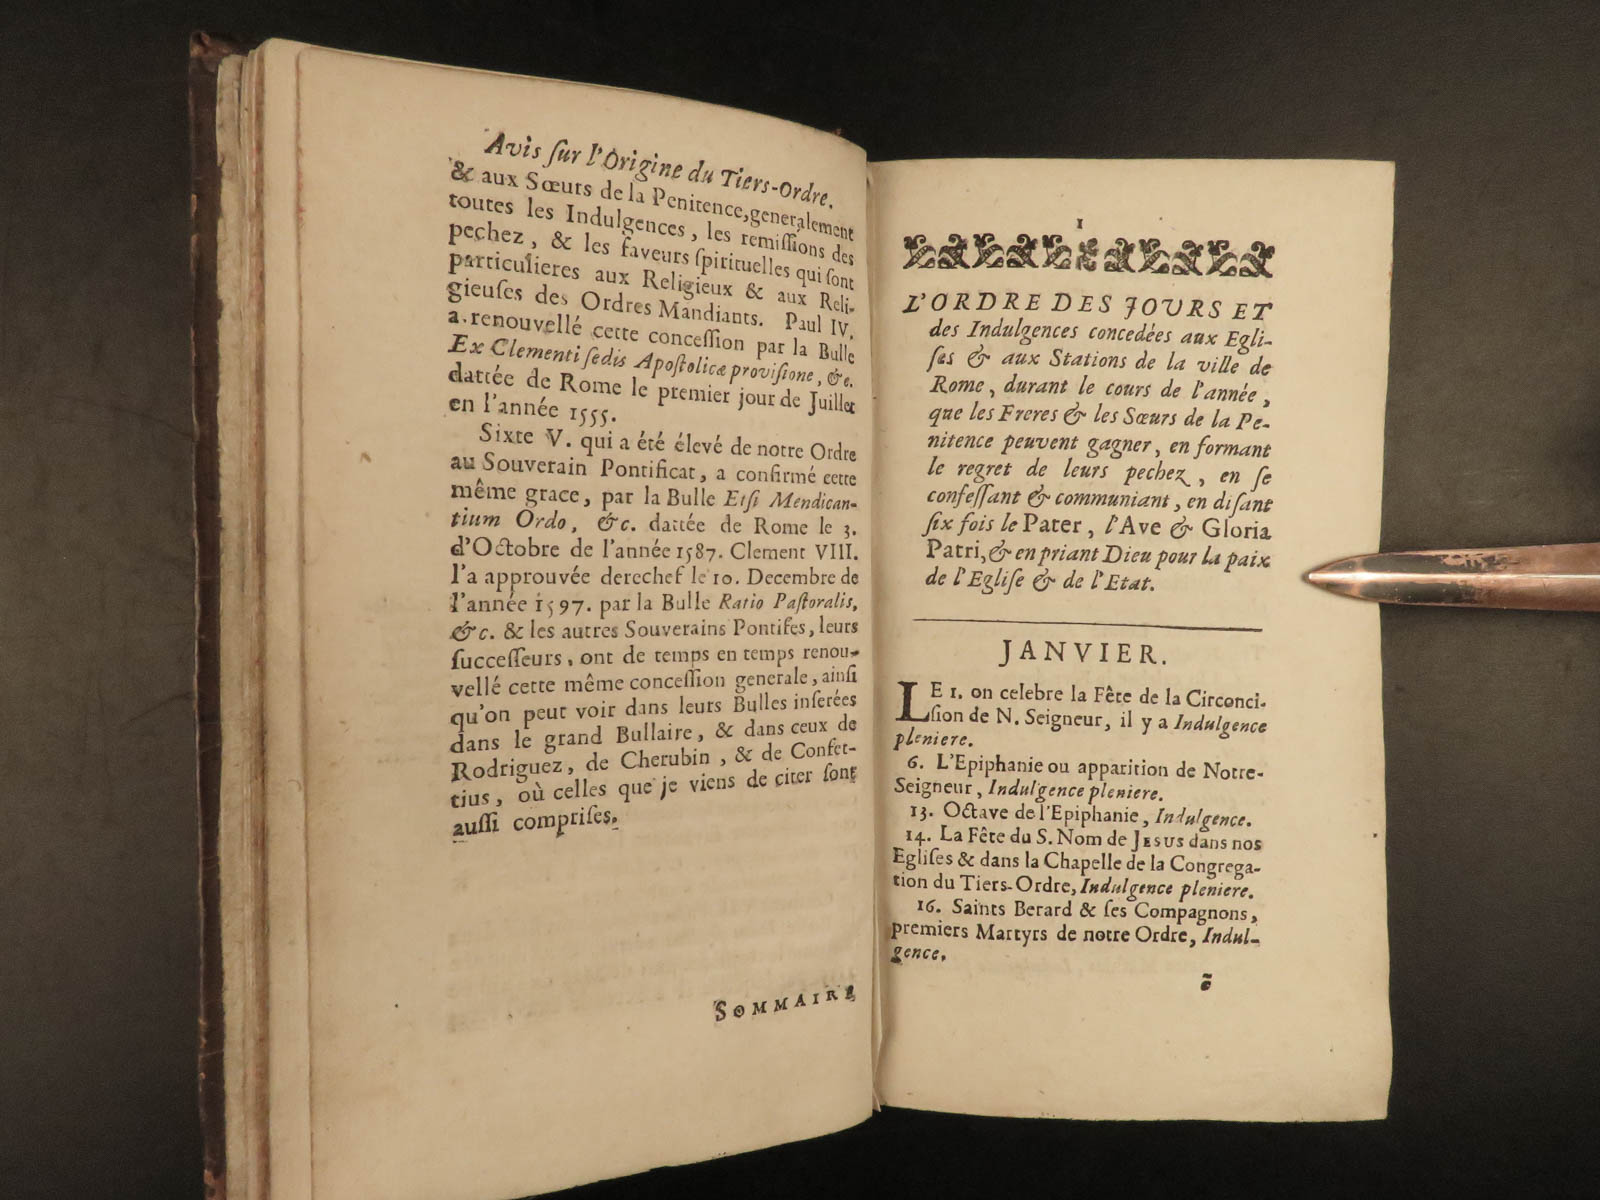 Avis ſur l'Origine du Tiers-Ordre.
& aux Sœurs de la Penitence, generalement
toutes les Indulgences, les remiſſions des
pechez, & les faveurs ſpirituelles qui ſont
particulieres aux Religieux & aux Reli-
gieuſes des Ordres Mandiants. Paul IV.
a renouvellé cette conceſſion par la Bulle
Ex Clementi ſedis Apoſtolicæ proviſione, &c.
dattée de Rome le premier jour de Juillet
en l'année 1555.
Sixte V. qui a été élevé de notre Ordre
au Souverain Pontificat, a confirmé cette
même grace, par la Bulle Etſi Mendican-
tium Ordo, &c. dattée de Rome le 3.
d'Octobre de l'année 1587. Clement VIII.
l'a approuvée derechef le 10. Decembre de
l'année 1597. par la Bulle Ratio Paſtoralis,
&c. & les autres Souverains Pontifes, leurs
ſucceſſeurs, ont de temps en temps renou-
vellé cette même conceſſion generale, ainſi
qu'on peut voir dans leurs Bulles inſerées
dans le grand Bullaire, & dans ceux de
Rodriguez, de Cherubin, & de Confet-
tius, où celles que je viens de citer ſont
auſſi compriſes.
SOMMAIRE
1
L'ORDRE DES JOURS ET
des Indulgences concedées aux Egli-
ſes & aux Stations de la ville de
Rome, durant le cours de l'année,
que les Freres & les Sœurs de la Pe-
nitence peuvent gagner, en formant
le regret de leurs pechez, en ſe
confeſſant & communiant, en diſant
ſix fois le Pater, l'Ave & Gloria
Patri, & en priant Dieu pour la paix
de l'Egliſe & de l'Etat.
JANVIER.
LE 1. on celebre la Fête de la Circonci-
ſion de N. Seigneur, il y a Indulgence
pleniere.
6. L'Epiphanie ou apparition de Notre-
Seigneur, Indulgence pleniere.
13. Octave de l'Epiphanie, Indulgence.
14. La Fête du S. Nom de JESUS dans nos
Egliſes & dans la Chapelle de la Congrega-
tion du Tiers-Ordre, Indulgence pleniere.
16. Saints Berard & ſes Compagnons,
premiers Martyrs de notre Ordre, Indul-
gence.
ẽ